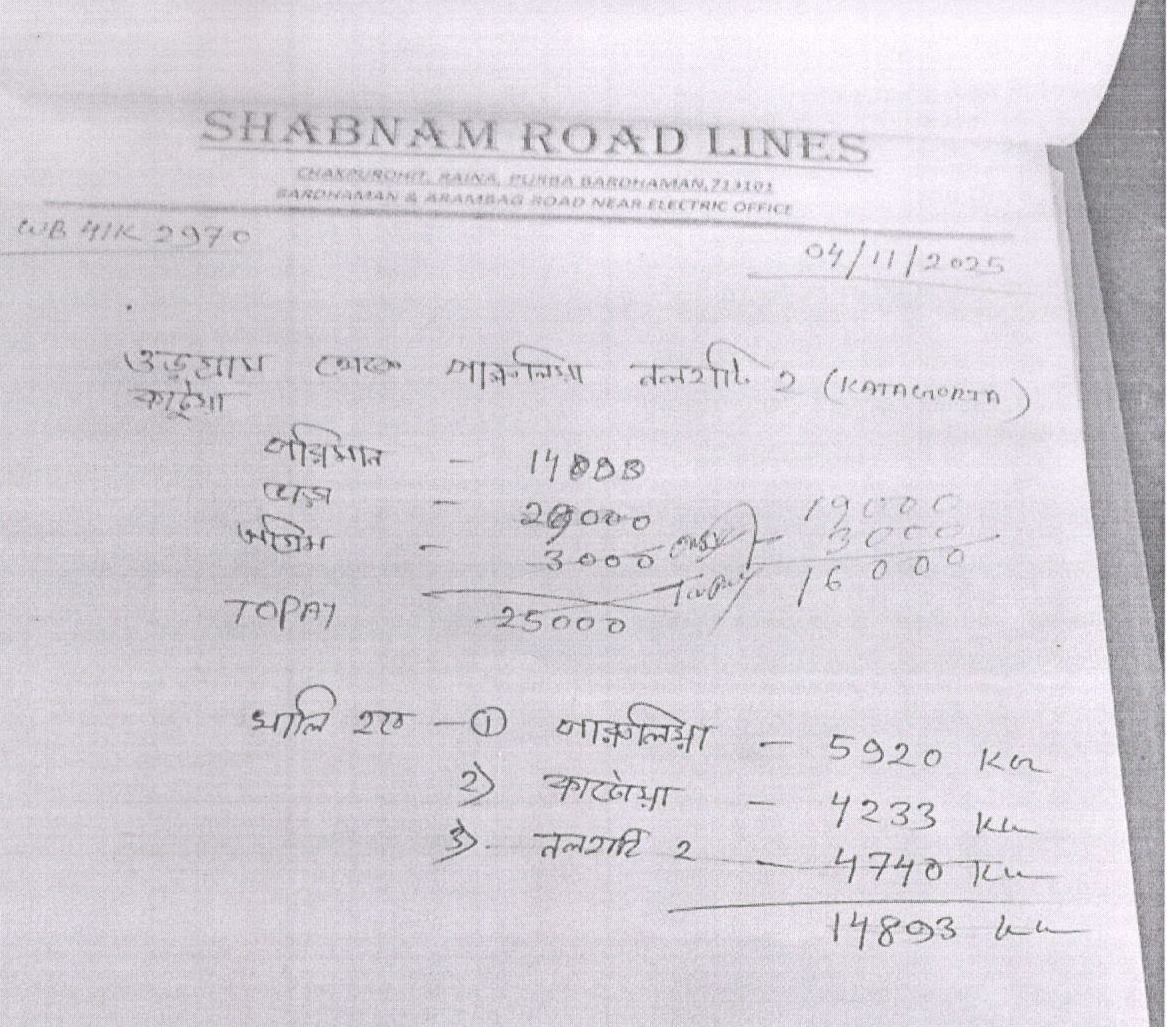 SHABNAM ROAD LINES
CHAKPUROHIT, RAINA, PURBA BARDHAMAN, 713101
BARDHAMAN & ARAMBAG ROAD NEAR ELECTRIC OFFICE
WB 41K 2970
04/11/2025
ওড়গ্রাম থেকে পারুলিয়া নলহাটি ২
কাটোয়া
পরিমান - 14893
ভাড়া - 000 19000
অগ্রিম - 3000 - 3000
TOPAY 25000 Topay 16000
খালি হবে - ① পারুলিয়া - 5920 KG
2) কাটোয়া - 4233 KG
3) নলহাটি ২ - 4740 KG
14893 KG